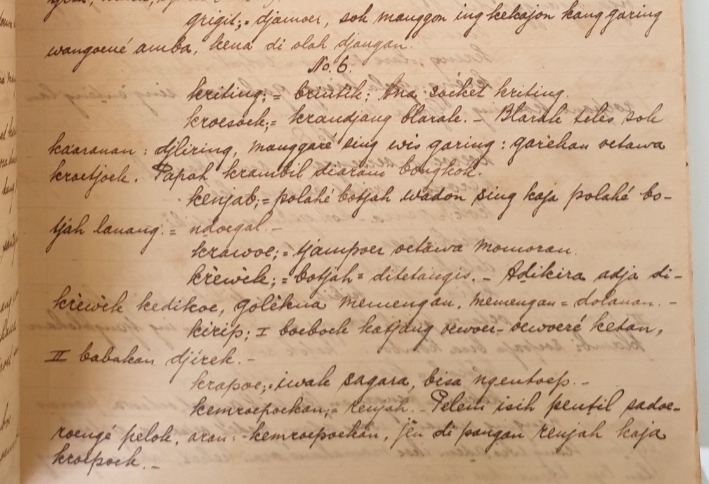 grigit; djamoer, sok manggon ing kekajon kang garing
wangoené amba, kena di olah djangan.
No. 6.
kriting; = brintik; Ana soeket kriting.
kroesoek; = krandjang blarak. – Blarak teles sok
kaaranan: djliring, manggaré sing wis garing: garèhan oetawa
kroetjoek. Papah krambil diarani bongkok.
kenjab; = polahé botjah wadon sing kaja polahé bo-
tjah lanang. = ndoegal. –
krawoe; = tjampoer oetawa momoran.
krèwèk; = botjah = ditetangis. – Adikira adja di-
krèwèk kedikoe, golèkna memengan, memengan = dolanan. –
kirip; I boeboek katjang oewoer-oewoeré ketan,
II babakan djirek. –
krapoe; iwak sagara, bisa ngentoep. –
kemroepoekan; = renjah. Pelem isih pentil sadoe-
roengé pelok, aran: kemroepoekan, jen di pangan renjah kaja
kroepoek. –